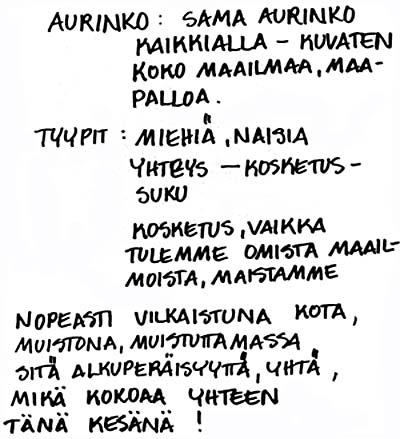 AURINKO: SAMA AURINKO
KAIKKIALLA – KUVATEN
KOKO MAAILMAA, MAA-
PALLOA.
TYYPIT: MIEHIÄ, NAISIA
YHTEYS – KOSKETUS –
SUKU
KOSKETUS, VAIKKA
TULEMME OMISTA MAAIL-
MOISTA, MAISTAMME
NOPEASTI VILKAISTUNA KOTA,
MUISTONA, MUISTUTTAMASSA
SITÄ ALKUPERÄISYYTTÄ, YHTÄ,
MIKÄ KOKOAA YHTEEN
TÄNÄ KESÄNÄ!